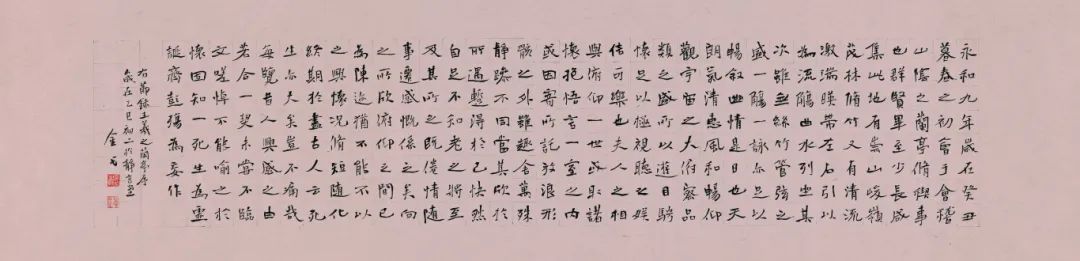 永和九年歲在癸丑
暮春之初會于會稽
山陰之蘭亭脩禊事
也群賢畢至少長咸
集此地有崇山峻嶺
茂林脩竹又有清流
激湍暎帶左右引以
為流觴曲水列坐其
次雖無絲竹管弦之
盛一觴一詠亦足以
暢叙幽情是日也天
朗氣清惠風和暢仰
觀宇宙之大俯察品
類之盛所以遊目騁
懷足以極視聽之娛
信可樂也夫人之相
與俯仰一世或取諸
懷抱悟言一室之內
或因寄所託放浪形
骸之外雖趣舍萬殊
靜躁不同當其欣於
所遇暫得於己快然
自足不知老之將至
及其所之既倦情隨
事遷感慨係之矣向
之所欣俯仰之間已
為陳迹猶不能不以
之興懷況脩短隨化
終期於盡古人云死
生亦大矣豈不痛哉
每覽昔人興感之由
若合一契未嘗不臨
文嗟悼不能喻之於
懷固知一死生為虛
誕齊彭殤為妄作
右節錄王羲之蘭亭序
歲在乙巳初二於靜
金